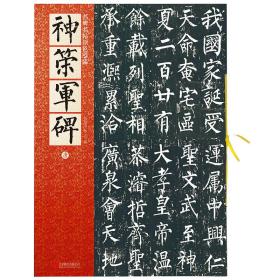 神策軍碑
我國家誕受運屬中興仁
天命奄宅區聖文武至神
夏二百廿有大孝皇帝溫
餘載列聖相恭濬哲齊聖
承重熙累洽廣泉會天地